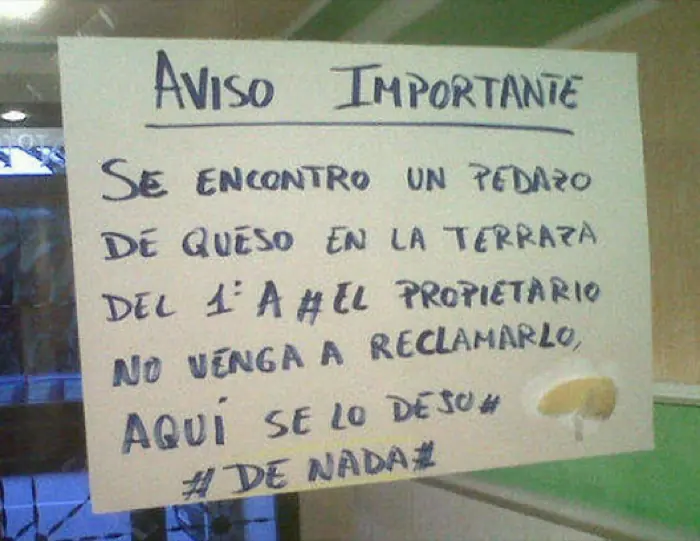 AVISO IMPORTANTE
SE ENCONTRO UN PEDAZO
DE QUESO EN LA TERRAZA
DEL 1º A # EL PROPIETARIO
NO VENGA A RECLAMARLO,
AQUÍ SE LO DEJO #
# DE NADA #